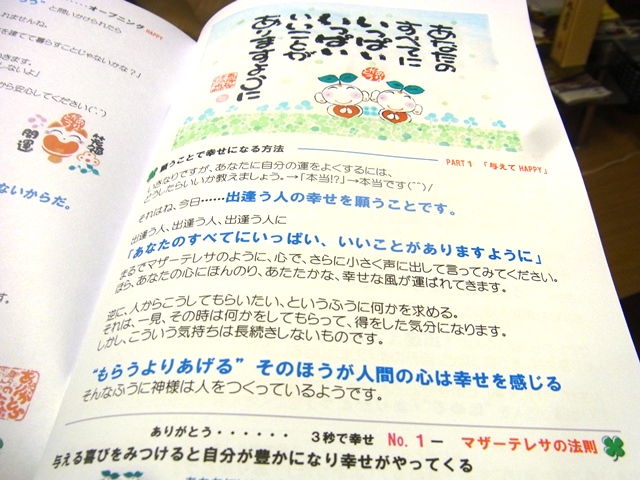 ・・・・オープニング HAPPY
と問いかけられたら
れませんね。
を建てて暮らすことじゃないかな？」
きます。
しないよ」
から安心してください(˙˙)
開運
笑門福
ないからだ。
す。
あなたの
すべてに
いっぱい
いっぱい
いいことが
ありますように
PART1 「与えてHAPPY」
願うことで幸せになる方法
いきなりですが、あなたに自分の運をよくするには、
どうしたらいいか教えましょう。→「本当!?」→本当です(˙˙)/
それはね、今日……出逢う人の幸せを願うことです。
出逢う人、出逢う人、出逢う人に
「あなたのすべてにいっぱい、いいことがありますように」
まるでマザーテレサのように、心で、さらに小さく声に出して言ってみてください。
ほら、あなたの心にほんのり、あたたかな、幸せな風が運ばれてきます。
逆に、人からこうしてもらいたい、というふうに何かを求める。
それは、一見、その時は何かをしてもらって、得をした気分になります。
しかし、こういう気持ちは長続きしないものです。
“もらうよりあげる” そのほうが人間の心は幸せを感じる
そんなふうに神様は人をつくっているようです。
ありがとう・・・・・・ 3秒で幸せ No.1ー マザーテレサの法則
与える喜びをみつけると自分が豊かになり幸せがやってくる